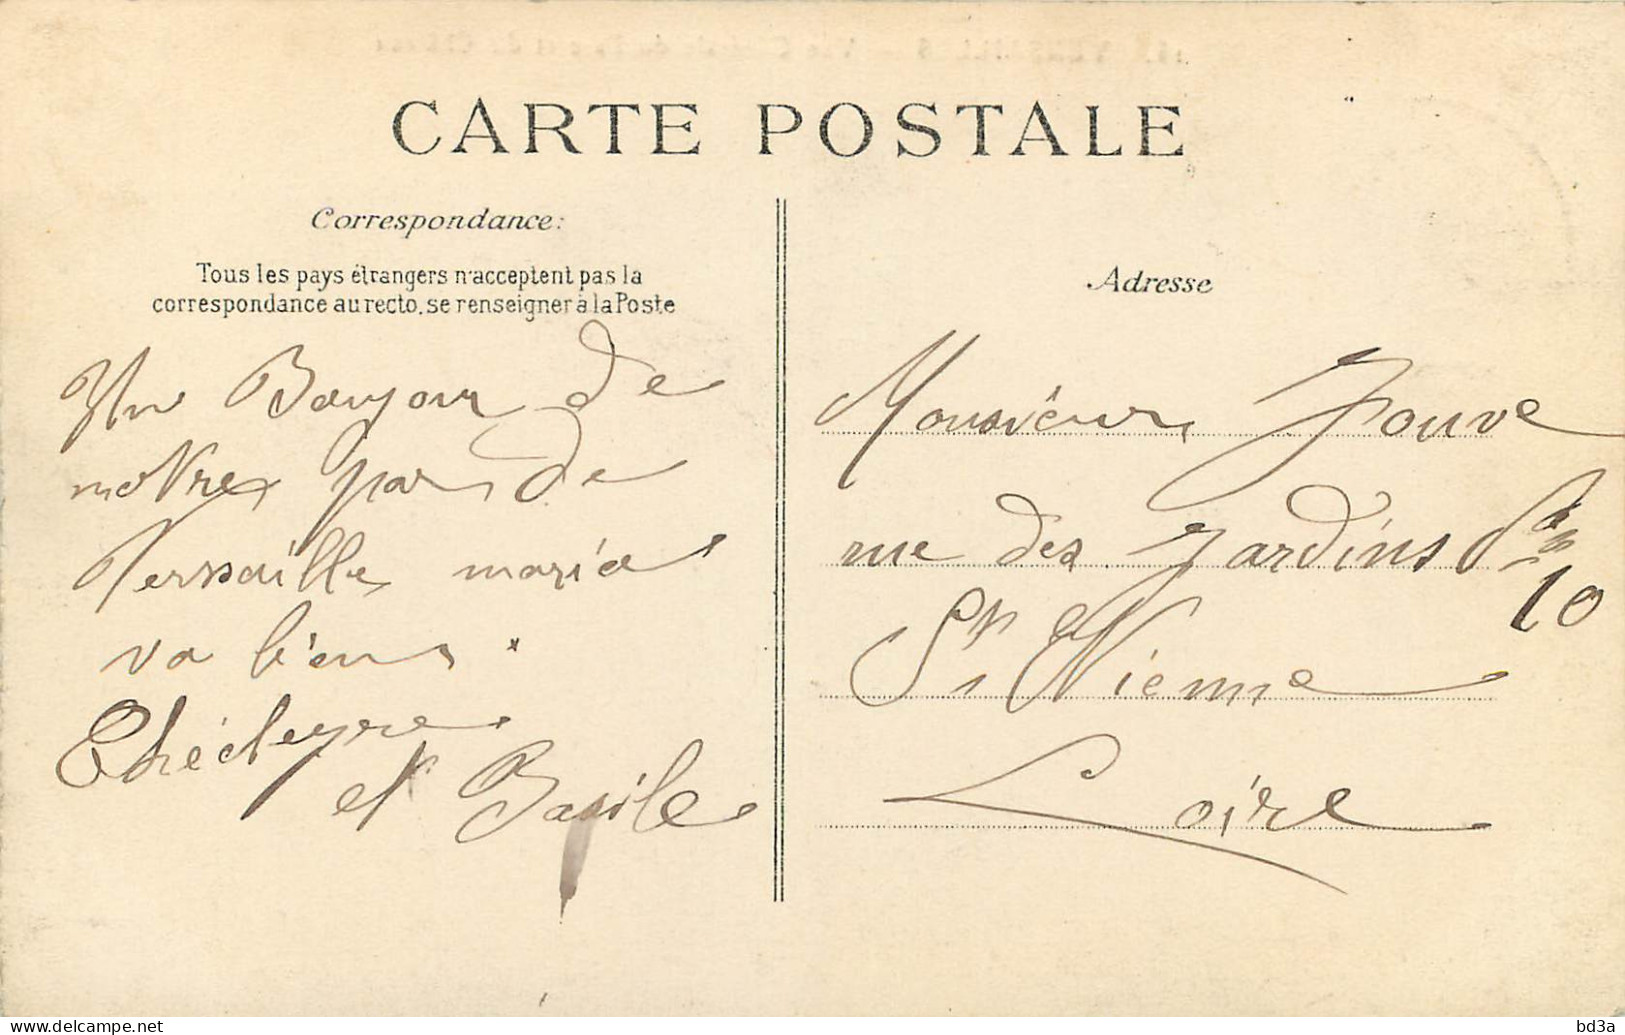 CARTE POSTALE
Correspondance:
Tous les pays étrangers n'acceptent pas la
correspondance au recto, se renseigner à la Poste
Un Bonjour de
notre par de
Versaille maria
va bien.
et Basile
Adresse
Monsieur Jouve
rue des Jardins
10
St Etienne
Loire
bd3a